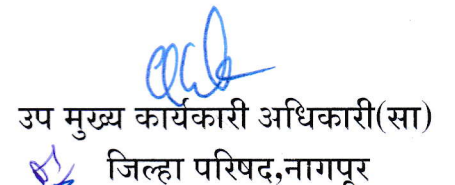 उप मुख्य कार्यकारी अधिकारी(सा)
जिल्हा परिषद,नागपूर